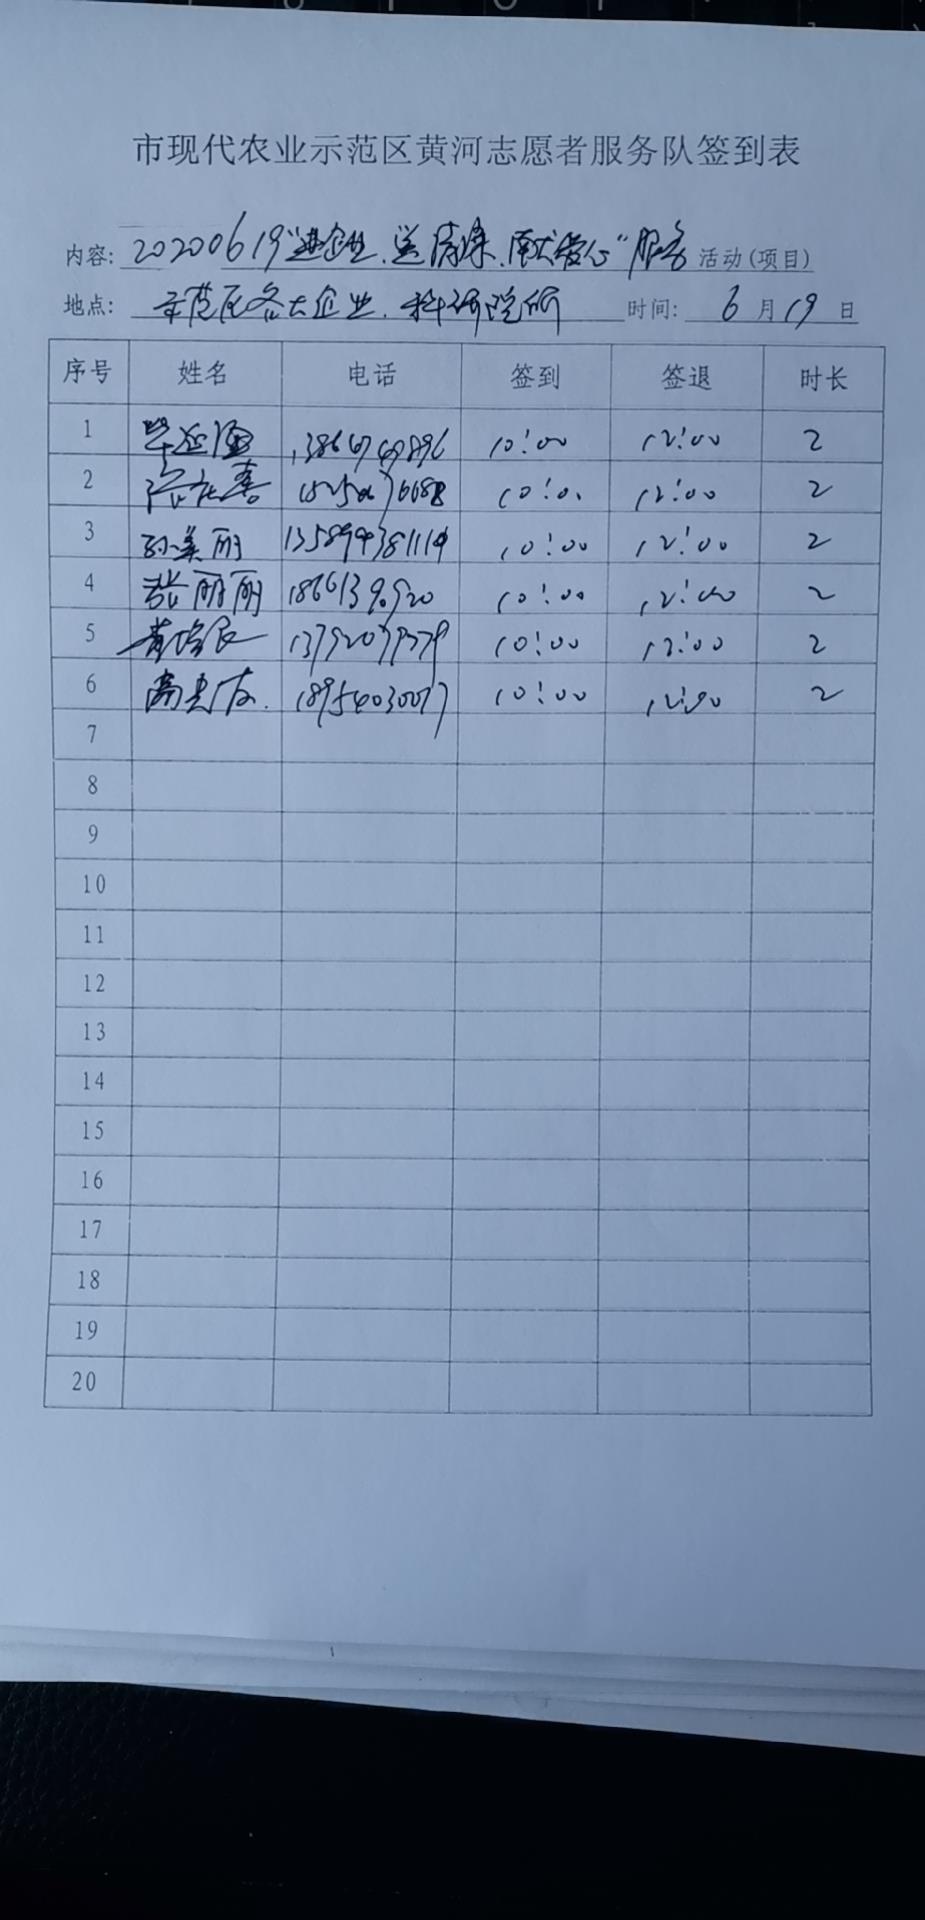 市现代农业示范区黄河志愿者服务队签到表
内容: 20200619"进企业、送清凉、献爱心"服务 活动(项目)
地点: 示范区各大企业、科研院所 时间: 6 月 19 日
序号 姓名 电话 签到 签退 时长
1 10:00 12:00 2
2 10:00 12:00 2
3 孙美丽 13589943811 10:00 12:00 2
4 张丽丽 10:00 12:00 2
5 10:00 12:00 2
6 18954030077 10:00 12:00 2
7
8
9
10
11
12
13
14
15
16
17
18
19
20